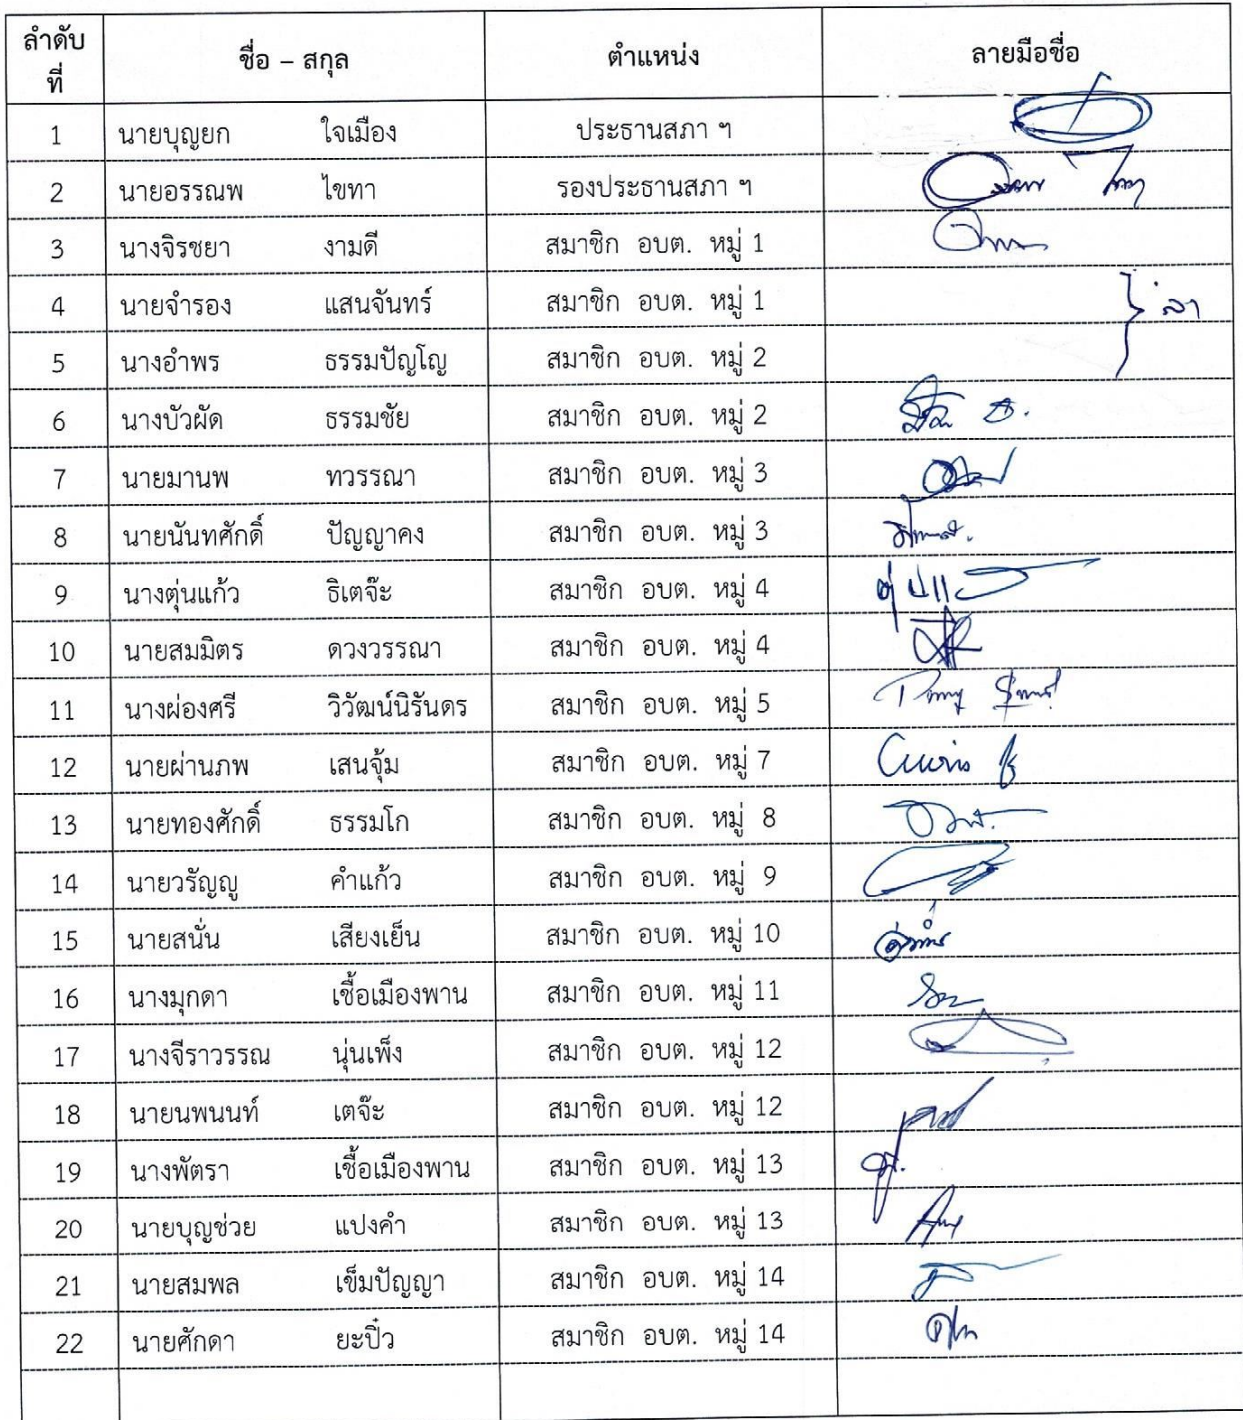 ลำดับที่ ชื่อ – สกุล ตำแหน่ง ลายมือชื่อ
1 นายบุญยก ใจเมือง ประธานสภา ฯ
2 นายอรรณพ ไขทา รองประธานสภา ฯ
3 นางจิรชยา งามดี สมาชิก อบต. หมู่ 1
4 นายจำรอง แสนจันทร์ สมาชิก อบต. หมู่ 1 ลา
5 นางอำพร ธรรมปัญโญ สมาชิก อบต. หมู่ 2
6 นางบัวผัด ธรรมชัย สมาชิก อบต. หมู่ 2
7 นายมานพ ทวรรณา สมาชิก อบต. หมู่ 3
8 นายนันทศักดิ์ ปัญญาคง สมาชิก อบต. หมู่ 3
9 นางตุ่นแก้ว ธิเตจ๊ะ สมาชิก อบต. หมู่ 4
10 นายสมมิตร ดวงวรรณา สมาชิก อบต. หมู่ 4
11 นางผ่องศรี วิวัฒน์นิรันดร สมาชิก อบต. หมู่ 5
12 นายผ่านภพ เสนจุ้ม สมาชิก อบต. หมู่ 7
13 นายทองศักดิ์ ธรรมโก สมาชิก อบต. หมู่ 8
14 นายวรัญญู คำแก้ว สมาชิก อบต. หมู่ 9
15 นายสนั่น เสียงเย็น สมาชิก อบต. หมู่ 10
16 นางมุกดา เชื้อเมืองพาน สมาชิก อบต. หมู่ 11
17 นางจีราวรรณ นุ่นเพ็ง สมาชิก อบต. หมู่ 12
18 นายนพนนท์ เตจ๊ะ สมาชิก อบต. หมู่ 12
19 นางพัตรา เชื้อเมืองพาน สมาชิก อบต. หมู่ 13
20 นายบุญช่วย แปงคำ สมาชิก อบต. หมู่ 13
21 นายสมพล เข็มปัญญา สมาชิก อบต. หมู่ 14
22 นายศักดา ยะปิ๋ว สมาชิก อบต. หมู่ 14